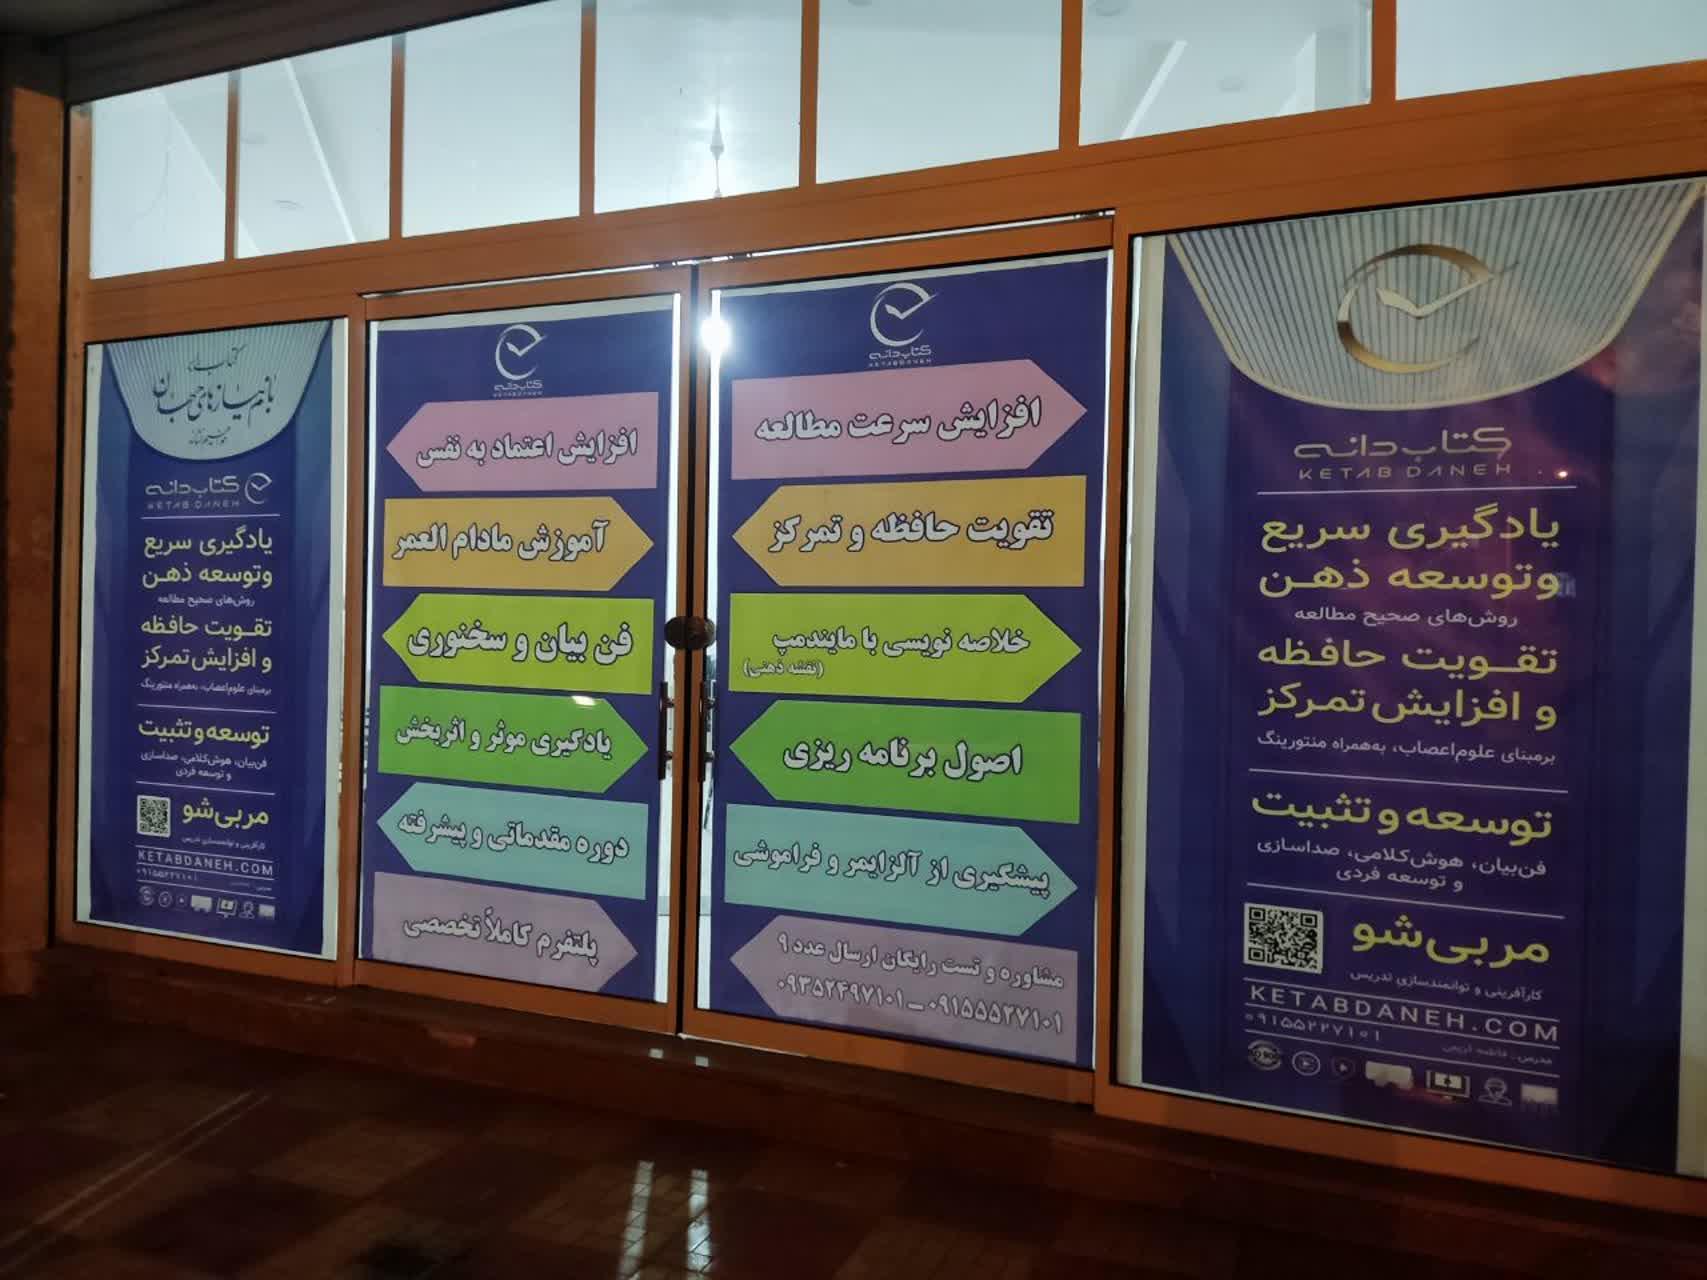 کتاب دانه
KETAB DANEH
یادگیری سریع
وتوسعه ذهن
روش‌های صحیح مطالعه
تقویت حافظه
و افزایش تمرکز
برمبنای علوم‌اعصاب، به‌همراه منتورینگ
توسعه و تثبیت
فن‌بیان، هوش‌کلامی، صداسازی
و توسعه فردی
مربی‌شو
کارآفرینی و توانمندسازی تدریس
KETABDANEH.COM
۰۹۱۵۵۲۲۷۱۰۱
کتاب دانه
KETABDANEH
افزایش سرعت مطالعه
تقویت حافظه و تمرکز
خلاصه نویسی با مایندمپ
(نقشه ذهنی)
اصول برنامه ریزی
پیشگیری از آلزایمر و فراموشی
مشاوره و تست رایگان ارسال عدد ۹
۰۹۱۵۵۵۲۷۱۰۱ــ۰۹۳۵۲۴۹۷۱۰۱
کتاب دانه
KETABDANEH
افزایش اعتماد به نفس
آموزش مادام العمر
فن بیان و سخنوری
یادگیری موثر و اثربخش
دوره مقدماتی و پیشرفته
پلتفرم کاملاً تخصصی
کتاب دانه
KETAB DANEH
یادگیری سریع
وتوسعه ذهن
روش‌های صحیح مطالعه
تقویت حافظه
و افزایش تمرکز
برمبنای علوم‌اعصاب، به‌همراه منتورینگ
توسعه و تثبیت
فن‌بیان، هوش‌کلامی، صداسازی
و توسعه فردی
مربی‌شو
کارآفرینی و توانمندسازی تدریس
KETABDANEH.COM
۰۹۱۵۵۲۲۷۱۰۱